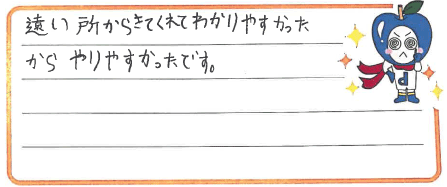 遠い所からきてくれてわかりやすかった
から やりやすかったです。